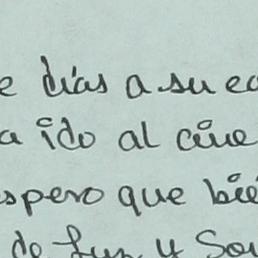 e días a su ed
a ido al cine
spero que bié
de Lun y Sou